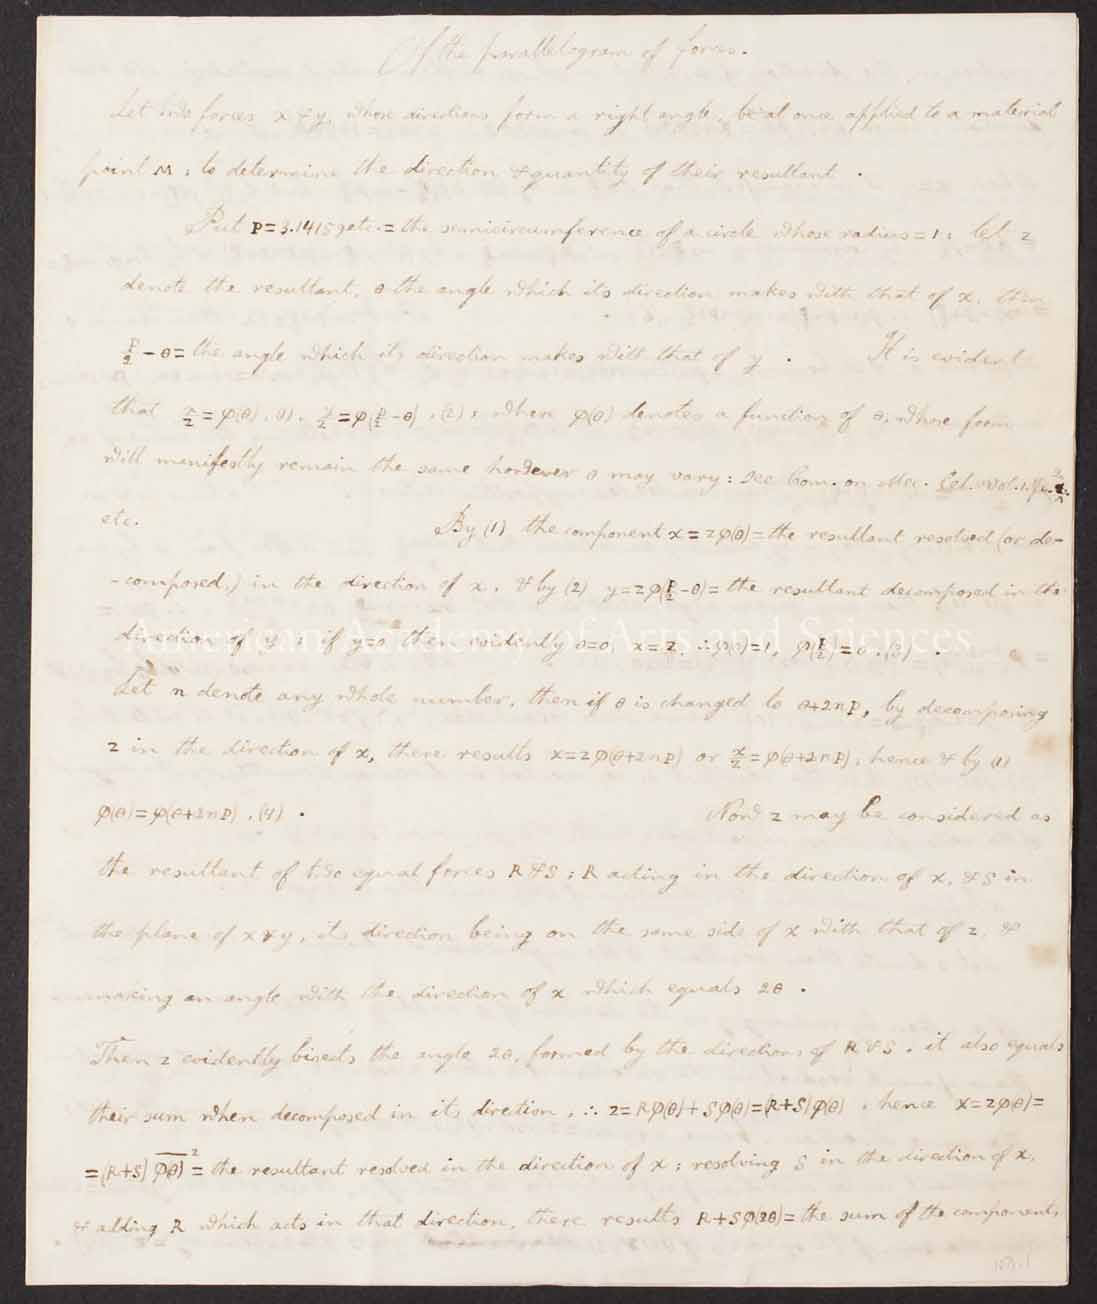 Of the parallelogram of forces.
Let two forces x & y, whose directions form a right angle, be at once applied to a material
point M; to determine the direction & quantity of their resultant.
Put P=3.14159 etc.= the semicircumference of a circle whose radius=1: let z
denote the resultant, θ the angle which its direction makes with that of x, then
P/2 - θ= the angle which its direction makes with that of y. It is evident
that x/z = φ(θ), (1), y/z = φ(P/2 - θ), (2); where φ(θ) denotes a function of θ, whose form
will manifestly remain the same however θ may vary: see Com. on Mec. Cel. vol. 1.
etc. By (1) the component x = zφ(θ) = the resultant resolved (or de-
-composed,) in the direction of x, & by (2) y=zφ(P/2 - θ)= the resultant decomposed in the
direction of y; if y=0 then evidently θ=0, x=z, ∴ φ(0)=1, φ(P/2)=0, (3).
American Academy of Arts and Sciences
Let n denote any whole number, then if θ is changed to θ+2nP, by decomposing
z in the direction of x, there results x=zφ(θ+2nP) or x/z=φ(θ+2nP), hence & by (1)
φ(θ)=φ(θ+2nP), (4). Now z may be considered as
the resultant of two equal forces R & S; R acting in the direction of x, & S in
the plane of x & y, its direction being on the same side of x with that of z, &
making an angle with the direction of x which equals 2θ.
Then z evidently bisects the angle 2θ, formed by the directions of R & S, it also equals
their sum when decomposed in its direction, ∴ z=Rφ(θ)+Sφ(θ)=(R+S)φ(θ), hence x=zφ(θ)=
=(R+S) φ(θ)²= the resultant resolved in the direction of x; resolving S in the direction of x,
& adding R which acts in that direction, there results R+Sφ(2θ)= the sum of the components